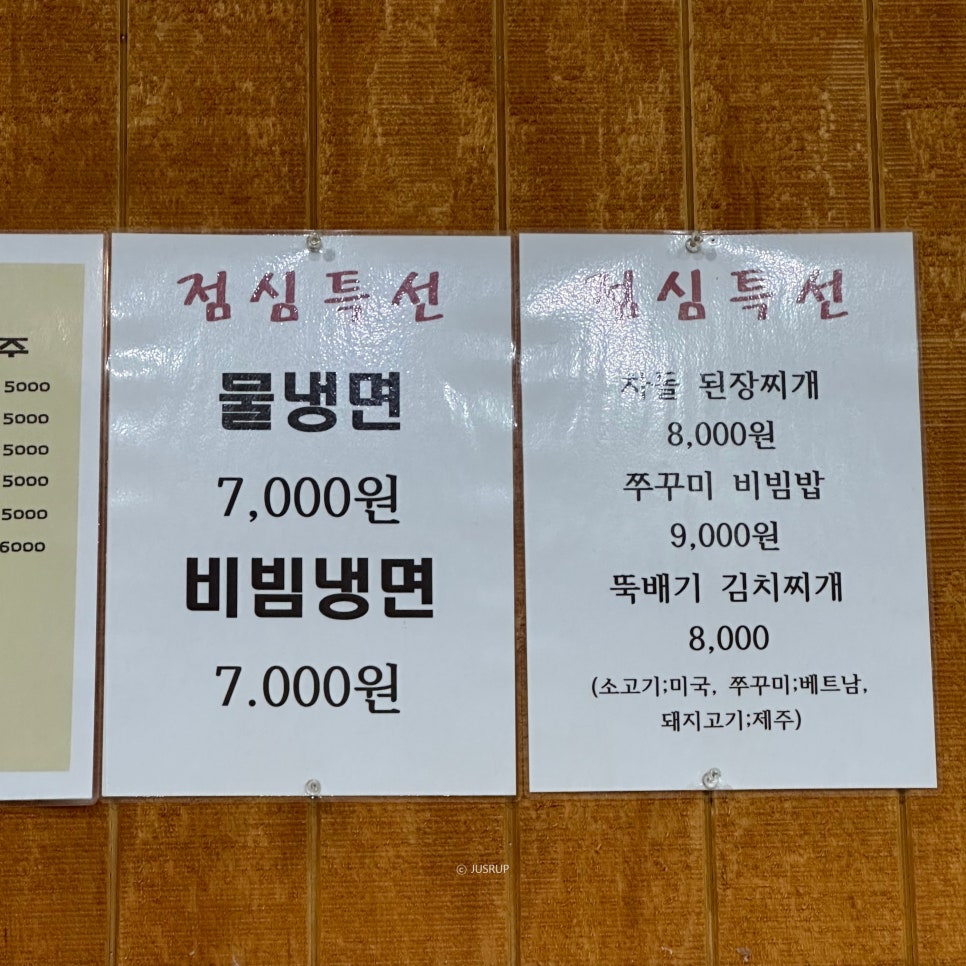 주
5000
5000
5000
5000
5000
6000
점심특선
물냉면
7,000원
비빔냉면
7.000원
점심특선
차돌 된장찌개
8,000원
쭈꾸미 비빔밥
9,000원
뚝배기 김치찌개
8,000
(소고기;미국, 쭈꾸미;베트남,
돼지고기;제주)
© JUSRUP